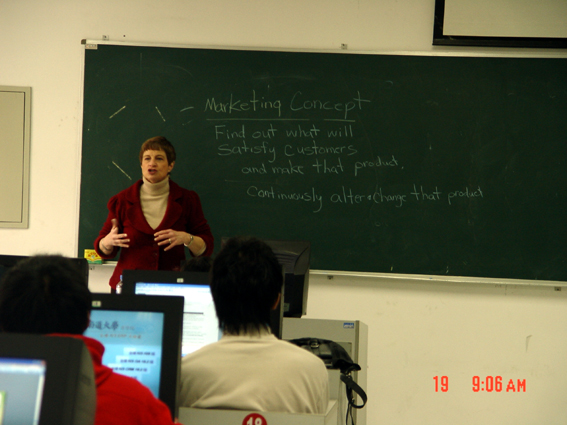 Marketing Concept
Find out what will
Satisfy Customers
and make that product.
Continuously alter + change that product
大学
19
19 9:06AM